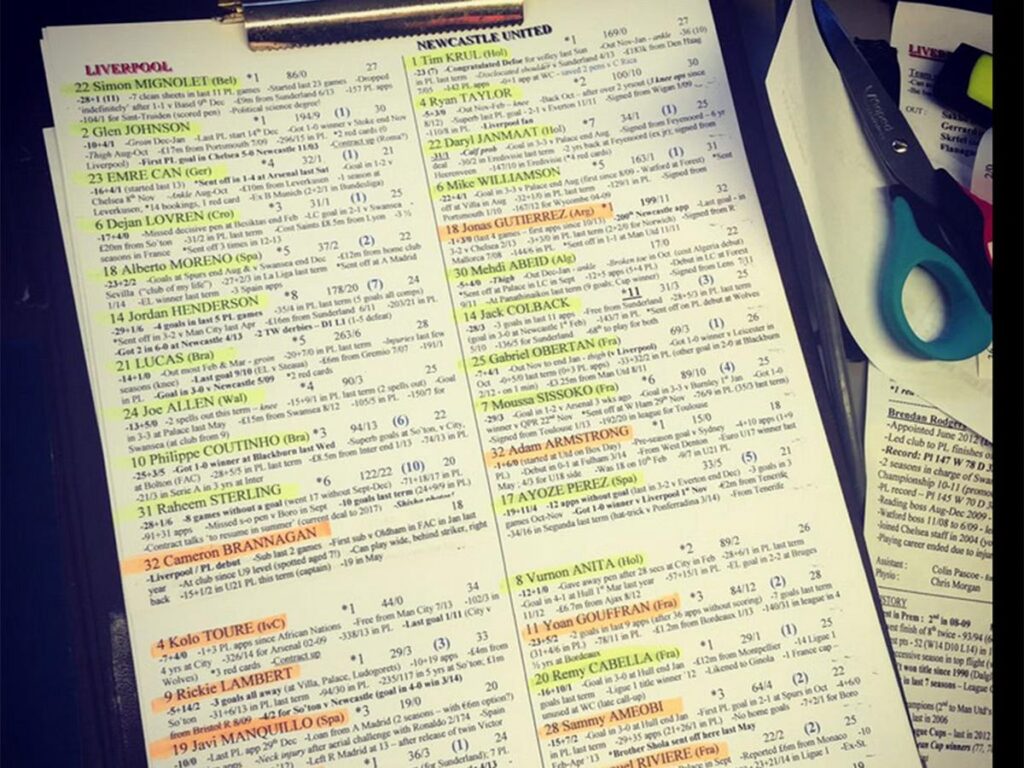 LIVERPOOL
22 Simon MIGNOLET (Bel) *1 86/0 27
-28+1 (11) -7 clean sheets in last 11 PL games -Started last 23 games -Dropped
'indefinitely' after 1-1 v Basel 9th Dec -£9m from Sunderland 6/13 -157 PL apps
-104/1 for Sint-Truiden (scored pen) -Political science degree!
2 Glen JOHNSON *1 194/9 (1) 30
-10+4/1 -Groin Dec-Jan -Last PL start 14th Dec -Got 1-0 winner v Stoke end Nov
-Thigh Aug-Oct -£17m from Portsmouth 7/09 -296/15 in PL *2 red cards (0
Liverpool) -First PL goal in Chelsea 5-0 Newcastle 11/03 -Contract up (Roma?)
23 EMRE CAN (Ger) *4 32/1 (1) 21
-16+4/1 (started last 13) *Sent off in 1-4 at Arsenal last Sat -Goal in 1-2 v
Chelsea 8th Nov -Ankle Aug-Oct -£10m from Leverkusen -1 season at
Leverkusen, *14 bookings, 1 red card -Ex B Munich (2+2/1 in Bundesliga)
6 Dejan LOVREN (Cro) *3 31/1 (1) 25
-17+4/0 -Missed decisive pen at Besiktas end Feb -LC goal in 2-1 v Swansea
£20m from So'ton -31/2 in PL last term -Cost Saints £8.5m from Lyon -3 ½
seasons in France *Sent off 3 times in 12-13
18 Alberto MORENO (Spa) *5 37/2 (2) 22
-23+2/2 -Goals at Spurs end Aug & v Swansea end Dec -£12m from home club
Sevilla ("club of my life") -27+2/3 in La Liga last term *Sent off at A Madrid
1/14 -EL winner last term -3 Spain apps
14 Jordan HENDERSON *8 178/20 (7) 24
-29+1/6 -4 goals in last 5 PL games -35/4 in PL last term (5 goals all comps)
*Sent off in 3-2 v Man City last Apr -£16m from Sunderland 6/11 -203/21 in PL
-Got 2 in 6-0 at Newcastle 4/13 -2 TW derbies – D1 L1 (1-5 defeat)
21 LUCAS (Bra) *5 263/6 28
-14+1/0 -Out most Feb & Mar - groin -20+7/0 in PL last term -Injuries last few
seasons (knee) -Last goal 9/10 (EL v Steaua) -£6m from Gremio 7/07 -191/1
in PL -Goal in 3-0 v Newcastle 5/09 *2 red cards
24 Joe ALLEN (Wal) *4 90/3 25
-13+5/0 -2 spells out this term – knee -15+9/1 in PL last term (2 spells out) -Goal
in 3-3 at Palace last May -£15m from Swansea 8/12 -105/5 in PL -150/7 for
Swansea (at club from 9)
10 Philippe COUTINHO (Bra) *3 94/13 (6) 22
-25+3/5 -Got 1-0 winner at Blackburn last Wed -Superb goals at So'ton, v City,
at Bolton (FAC) -28+5/5 in PL last term -£8.5m from Inter end 1/13 -74/13 in PL
-21/3 in Serie A in 3 yrs at Inter
31 Raheem STERLING *6 122/22 (10) 20
-28+1/6 -8 games without a goal (went 17 without Sept-Dec) -71+18/17 in PL
-91+31 apps -Missed s-o pen v Boro in Sept -10 goals last term (24+9/9 in PL)
-Contract talks 'to resume in summer' (current deal to 2017) -Shisha photo!
32 Cameron BRANNAGAN 18
-Liverpool / PL debut -Sub last 2 games -First sub v Oldham in FAC in Jan last
year -At club since U9 level (spotted aged 7!) -Can play wide, behind striker, right
back -15+1/2 in U21 PL this term (captain) -19 in May
4 Kolo TOURE (IvC) *1 44/0 34
-7+4/0 -1+3 PL apps since African Nations -Free from Man City 7/13 -102/3 in
4 yrs at City -326/14 for Arsenal 02-09 -338/13 in PL -Last goal 1/11 (City v
Wolves) *3 red cards -Contract up
9 Rickie LAMBERT *1 29/3 (3) 33
-5+14/2 -3 goals all away (at Villa, Palace, Ludogorets) -10+19 apps -£4m from
So'ton -31+6/13 in PL last term -94/30 in PL -235/117 in 5 yrs at So'ton, £1m
from Bristol R 8/09 -4/2 for So'ton v Newcastle (goal in 4-0 win 3/14)
19 Javi MANQUILLO (Spa) *3 19/0 20
-10/0 -Last PL app 29th Dec -Loan from A Madrid (2 seasons – with €6m option?)
-Neck injury after aerial challenge with Ronaldo 2/174 -Spain
-Left R Madrid at 13 – after release of twin Victor
36/3 (1) 24
NEWCASTLE UNITED
1 Tim KRUL (Hol) *1 169/0 27
-23 (7) -Congratulated Defoe for volley last Sun -Out Nov-Jan - ankle -36 (10)
in PL last term -Dislocated shoulder v Sunderland 4/13 -£181k from Den Haag
7/05 -142 PL apps -0+1 app at WC - saved 2 pens v C Rica
4 Ryan TAYLOR *2 100/10 30
-5+3/0 -Out Nov-Feb – knee -Back Oct – after over 2 years out (3 knee ops since
8/12) -Superb last PL goal - 2-1 v Everton 11/11 -Signed from Wigan 1/09
-110/8 in PL -Liverpool fan
22 Daryl JANMAAT (Hol) *7 34/1 (1) 25
-31/1 -Calf prob -Goal in 3-3 v Palace end Aug -Signed from Feyenoord – 6 yr
deal -30/2 in Eredivisie last term -2 yrs back at Feyenoord (ex jr), signed from
Heerenveen -147/10 in Eredivisie (*4 red cards)
6 Mike WILLIAMSON *5 163/1 (1) 31
-22+4/1 -Goal in 3-3 v Palace end Aug (first since 8/09 - Watford at Forest) *Sent
off at Villa in Aug -32+1/0 in PL last term -129/1 in PL -Signed from
Portsmouth 1/10 -167/12 for Wycombe 04-09
18 Jonas GUTIERREZ (Arg) *1 199/11 31
-1+3/0 (last 4 games – first apps since 10/13) -200th Newcastle app -Last goal - in
3-2 v Chelsea 2/13 -3+3/0 in PL last term (2+2/0 for Norwich) -Signed from R
Mallorca 7/08 -144/6 in PL *Sent off in 1-1 at Man Utd 11/11
30 Mehdi ABEID (Alg) 17/0 22
-5+4/0 -Thigh -Out Dec-Jan - ankle -Broken toe in Oct (cost Algeria debut)
*Sent off at Palace in LC in Sept -12+5 apps (5+4 PL) -Debut in LC at Forest
9/11 -At Panathinaikos last term (9 goals; Cup winner) -Signed from Lens 7/11
14 Jack COLBACK *11 31/3 (3) 25
-28/3 -3 goals in last 11 apps -Free from Sunderland -28+5/3 in PL last term
(goal in 3-0 at Newcastle 1st Feb) -143/7 in PL *Sent off on PL debut at Wolves
5/10 -136/5 for Sunderland -68th to play for both
25 Gabriel OBERTAN (Fra) 69/3 (1) 26
-7+4/1 -Out Nov to end Jan - thigh (v Liverpool) -Got 1-0 winner v Leicester in
Oct -0+5/0 last term (0+3 PL apps) -33+32/2 in PL (other goal in 2-0 at Blackburn
2/12 - on 1 min) -£3.25m from Man Utd 8/11
7 Moussa SISSOKO (Fra) *6 89/10 (4) 25
-29/3 -Goal in 1-2 v Arsenal 3 wks ago -Goal in 3-3 v Burnley 1st Jan -Got 1-0
winner v QPR 22nd Nov *Sent off at W Ham 29th Nov -76/9 in PL (35/3 last term)
-Signed from Toulouse 1/13 -192/20 in league for Toulouse
32 Adam ARMSTRONG 15/0 18
-1+6/0 (started at Utd on Box Day) -Pre-season goal v Sydney -4+10 apps (1+9
PL) -Debut in 0-1 at Fulham 3/14 -From West Denton -Euro U17 winner last
May; 4/3 for U18 side -Was 18 on 10th Feb -9/7 in U21 PL
17 AYOZE PEREZ (Spa) 33/5 (5) 21
-19+11/4 -12 apps without goal (last in 3-2 v Everton end Dec) -3 goals in 3
games Oct-Nov -Got 1-0 winner v Liverpool 1st Nov -€2m from Tenerife
-34/16 in Segunda last term (hat-trick v Ponferradina 3/14) -From Tenerife
8 Vurnon ANITA (Hol) *2 89/2 26
-12+1/0 -Gave away pen after 28 secs at City in Feb -28+6/1 in PL last term
-Goal in 4-1 at Hull 1st Mar last year -57+15/1 in PL -EL goal in 2-2 at Bruges
11/12 -£6.7m from Ajax 8/12
11 Yoan GOUFFRAN (Fra) *3 84/12 (2) 28
-23+5/2 -2 goals in last 9 apps (after 36 apps without scoring) -7 goals last term
(4+1 mths) -78/11 in PL -£1.2m from Bordeaux 1/13 -140/31 in league in 4
½ yrs at Bordeaux
20 Remy CABELLA (Fra) *1 29/1 (1) 25
-16+10/1 -Goal in 3-0 at Hull end Jan -£12m from Montpellier -14 Ligue 1
goals last term -Ligue 1 title winner '12 -Likened to Ginola -1 France cap,
unused at WC (late call-up)
28 Sammy AMEOBI *3 64/4 (2) 22
-15+7/2 -Goal in 3-0 at Hull end Jan -First PL goal in 2-1 at Spurs in Oct -4+6/0
in PL last term -29+35 apps (21+26/3 in PL) -No home goals -7+2/1 for Boro
Feb-Apr '13 *Brother Shola sent off here last May
RIVIERE (Fra) 22/2 (2) 25
-Reported £6m from Monaco -10
-23+21/14 in Ligue 1 -Ex-St.
LIVERP
OUT :
Sakho
Gerrard
Skrtel
Flanagan
Brendan Rodgers
-Appointed June 2012
-Led club to PL
-Record: Pl 147 W 78 D 3
-2 seasons in charge of Swan
Championship 10-11 (promo
PL record – Pl 145 W 70 D 3
-Reading boss Aug-Dec 2009
-Watford boss 11/08 to 6/09
-Joined Chelsea staff in 2004
-Playing career ended due to injury
Assistant : Colin Pascoe
Physio : Chris Morgan
STORY